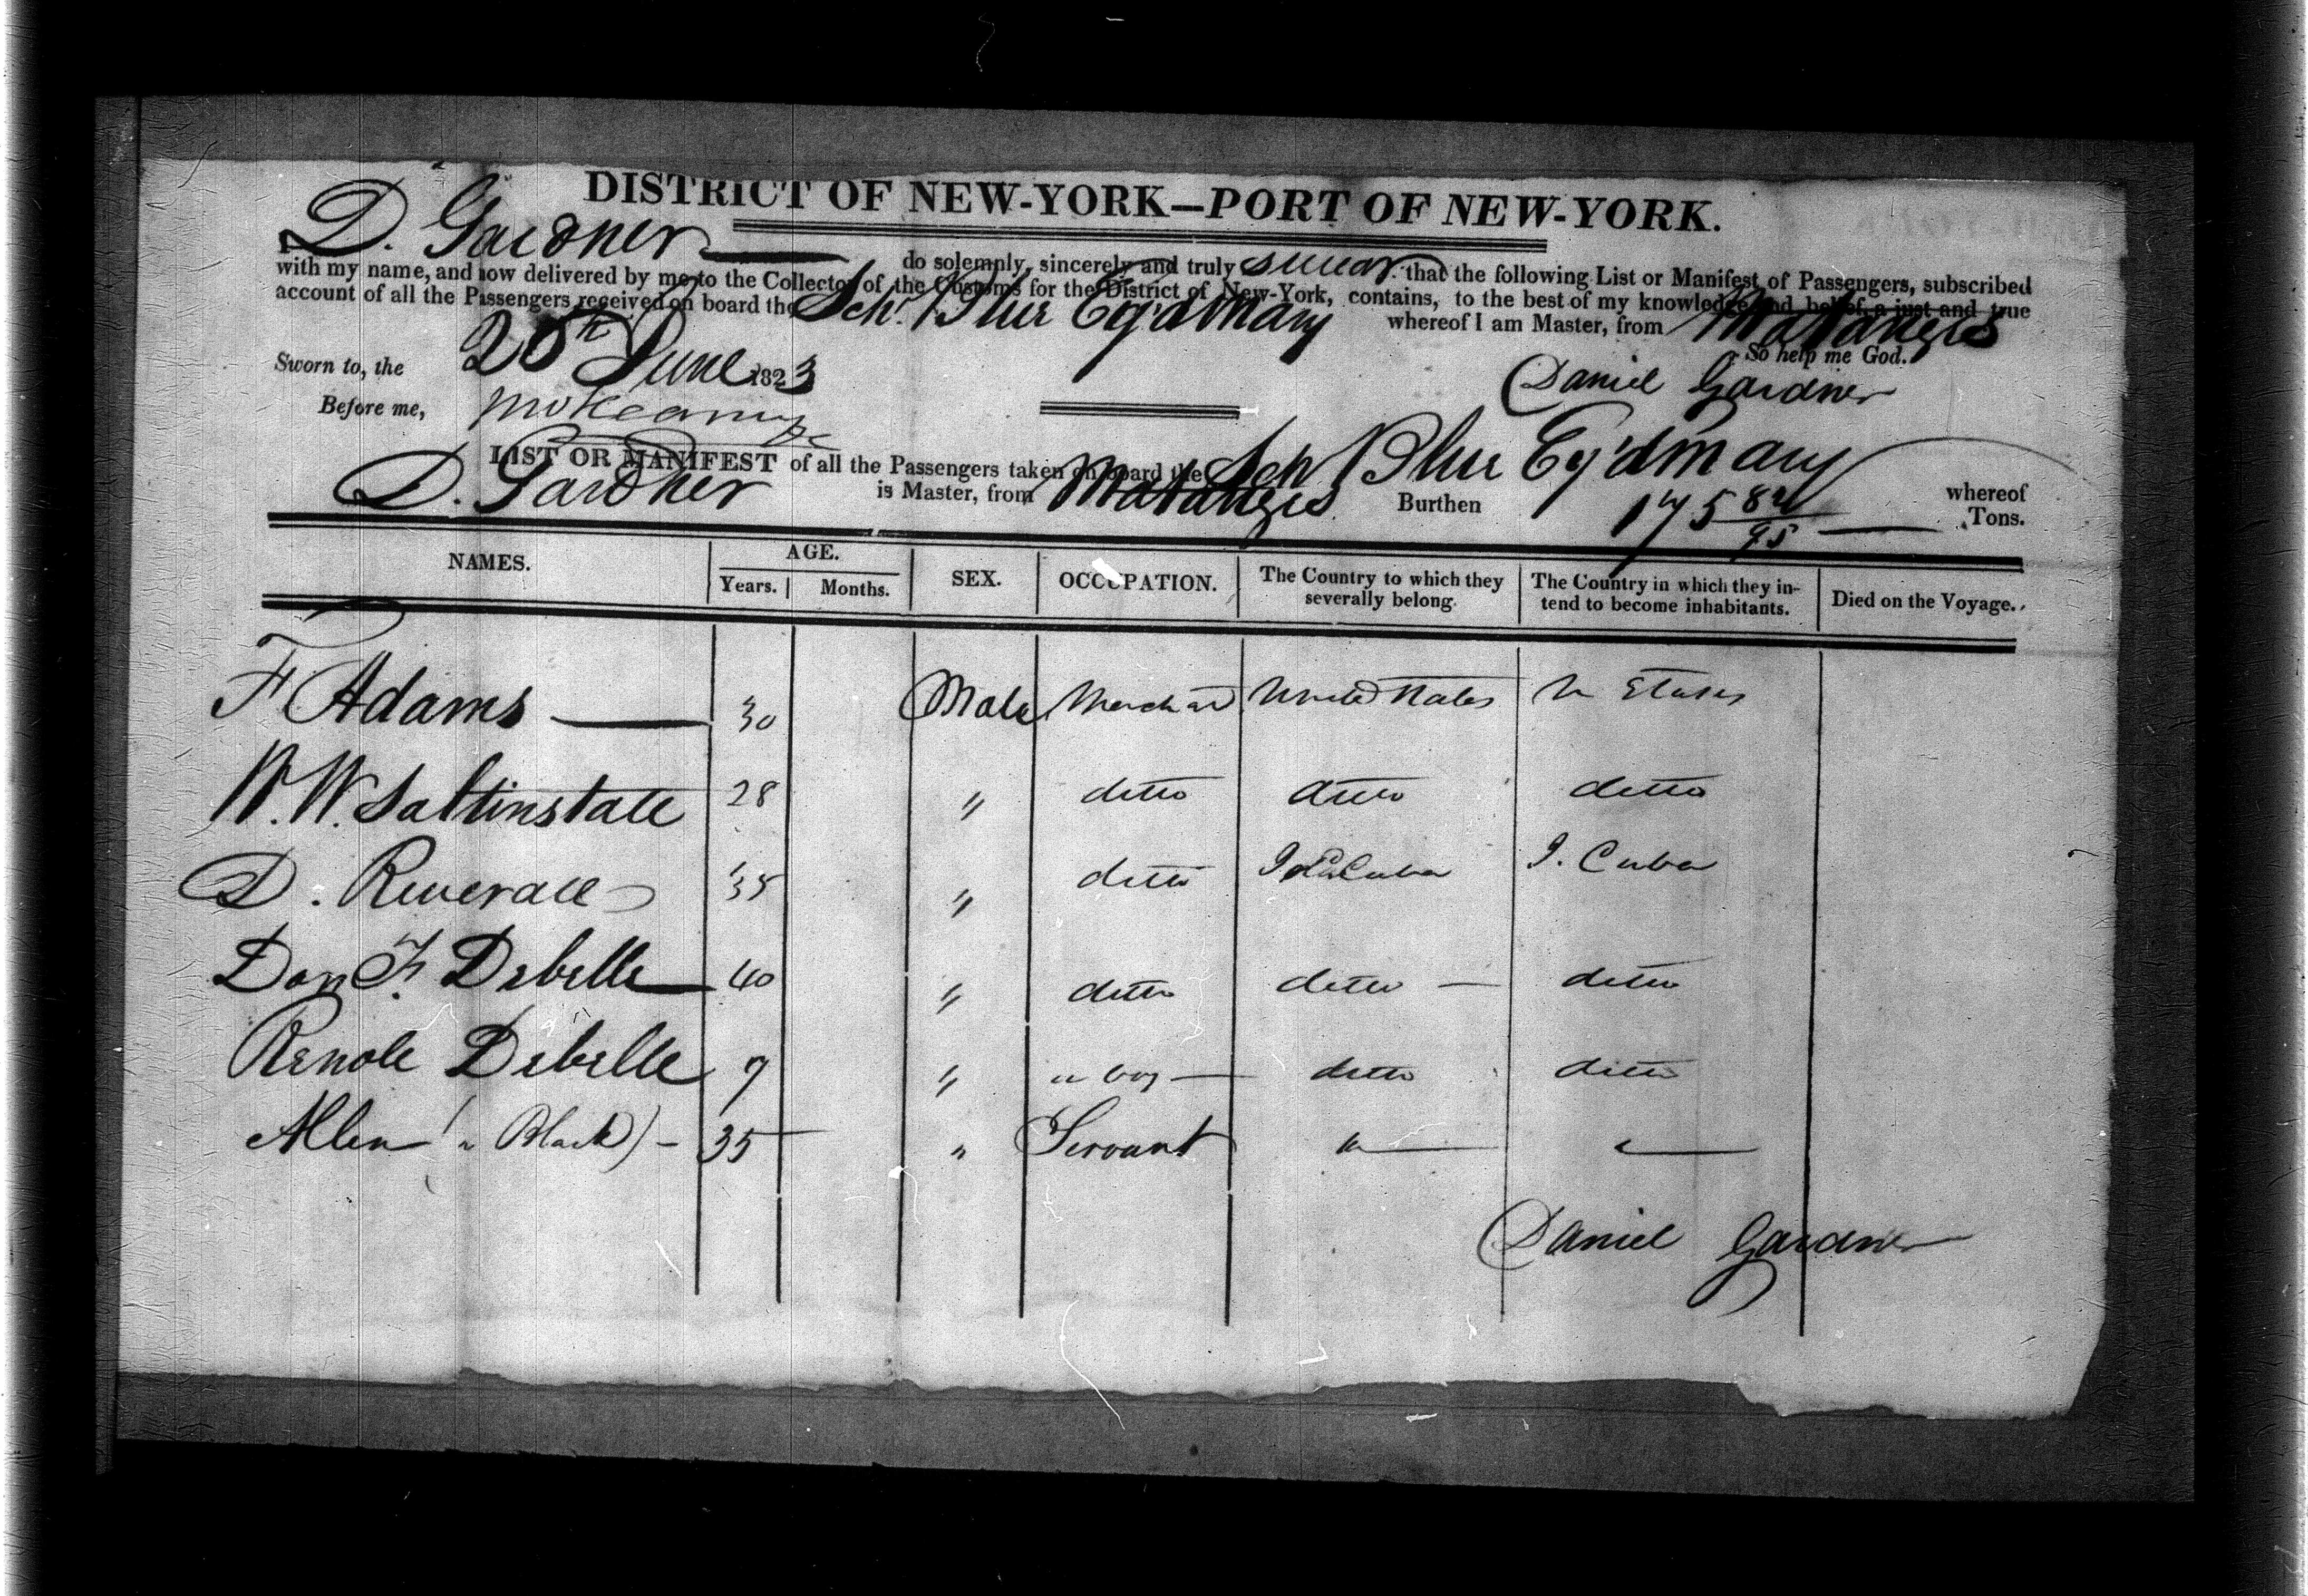 DISTRICT OF NEW-YORK—PORT OF NEW-YORK.
I D. Gardner do solemnly, sincerely and truly swear that the following List or Manifest of Passengers, subscribed
with my name, and now delivered by me to the Collector of the Customs for the District of New-York, contains, to the best of my knowledge and belief, a just and true
account of all the Passengers received on board the Schr Blue Ey'd Mary whereof I am Master, from Matanzes
So help me God.
Sworn to, the 20th June 1823
Daniel Gardner
Before me,
LIST OR MANIFEST of all the Passengers taken on board the Sch Blue Ey'd Mary whereof
D. Gardner is Master, from Matanzes Burthen 175 82/95 Tons.
NAMES. AGE. Years. Months. SEX. OCCUPATION. The Country to which they severally belong. The Country in which they intend to become inhabitants. Died on the Voyage.
F Adams — 30 Male Merchant United States U States
W. W. Saltinstall 28 " ditto ditto ditto
D. 35 " ditto I Cuba I. Cuba
Don F. Debelle 40 " ditto ditto — ditto
Debelle 9 " a boy — ditto ditto
Allen (a Black) — 35 " Servant " "
Daniel Gardner